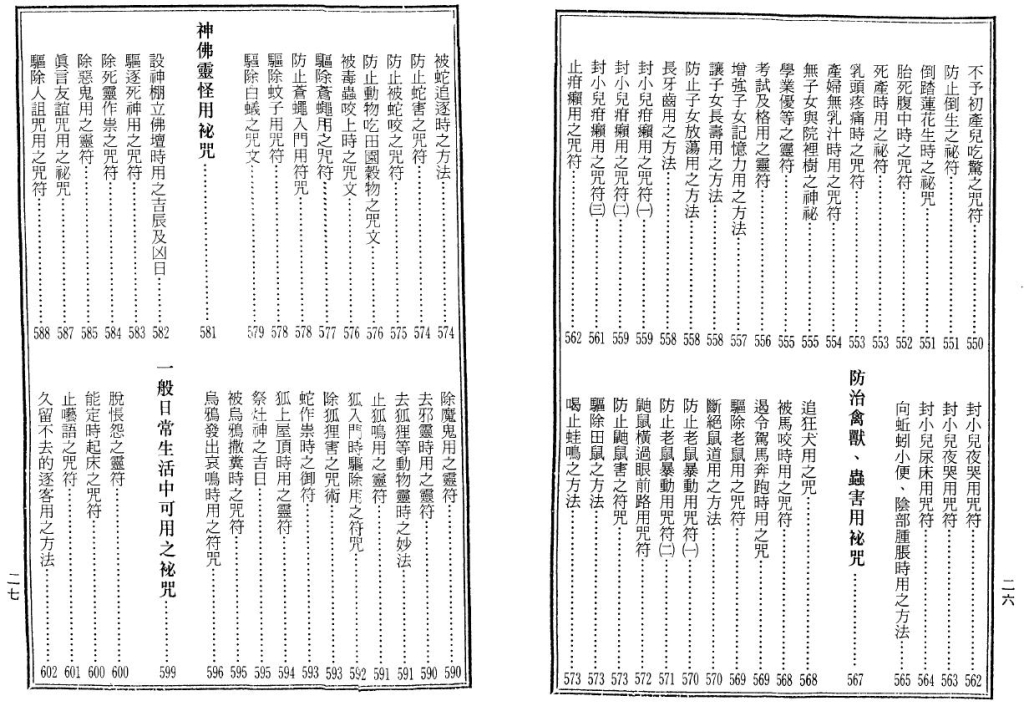 不予初產兒吃驚之咒符…………550
防止倒生之祕符…………551
倒踏蓮花生時之祕咒…………551
胎死腹中時之咒符…………552
死產時用之祕符…………553
乳頭疼痛時之咒符…………553
產婦無乳汁時用之咒符…………554
無子女與院裡樹之神祕…………555
學業優等之靈符…………555
考試及格用之靈符…………556
增強子女記憶力用之方法…………557
讓子女長壽用之方法…………558
防止子女放蕩用之方法…………558
長牙齒用之方法…………558
封小兒疳癩用之咒符㈠…………559
封小兒疳癩用之咒符㈡…………559
封小兒疳癩用之咒符㈢…………561
止疳癩用之咒符…………562
封小兒夜哭用咒符…………562
封小兒夜哭用咒符…………563
封小兒尿床用咒符…………564
向蚯蚓小便、陰部腫脹時用之方法…………565
防治禽獸、蟲害用祕咒…………567
追狂犬用之咒…………568
被馬咬時用之咒符…………568
遏令駕馬奔跑時用之咒…………569
驅除老鼠用之咒符…………569
斷絕鼠道用之方法…………570
防止老鼠暴動用咒符㈠…………570
防止老鼠暴動用咒符㈡…………571
鼬鼠橫過眼前路用咒符…………572
防止鼬鼠害之符咒…………573
驅除田鼠之方法…………573
喝止蛙鳴之方法…………573
二六
被蛇追逐時之方法…………574
防止蛇害之咒符…………574
防止被蛇咬之咒符…………575
防止動物吃田園穀物之咒文…………576
被毒蟲咬上時之咒文…………576
驅除蒼蠅用之咒符…………577
防止蒼蠅入門用符咒…………578
驅除蚊子用咒符…………578
驅除白蟻之咒文…………579
神佛靈怪用祕咒…………581
設神棚立佛壇時用之吉辰及凶日…………582
驅逐死神用之咒符…………583
除死靈作祟之咒符…………584
除惡鬼用之靈符…………585
眞言友誼咒用之祕咒…………587
驅除人詛咒用之咒符…………588
除魔鬼用之靈符…………590
去邪靈時用之靈符…………590
去狐狸等動物靈時之妙法…………591
止狐鳴用之靈符…………591
狐入門時驅除用之符咒…………592
除狐狸害之咒術…………593
蛇作祟時之御符…………593
狐上屋頂時用之靈符…………594
祭灶神之吉日…………595
被烏鴉撒糞時之咒符…………595
烏鴉發出哀鳴時用之符咒…………596
一般日常生活中可用之祕咒…………599
脫悵怨之靈符…………600
能定時起床之咒符…………600
止囈語之咒符…………601
久留不去的逐客用之方法…………602
二七